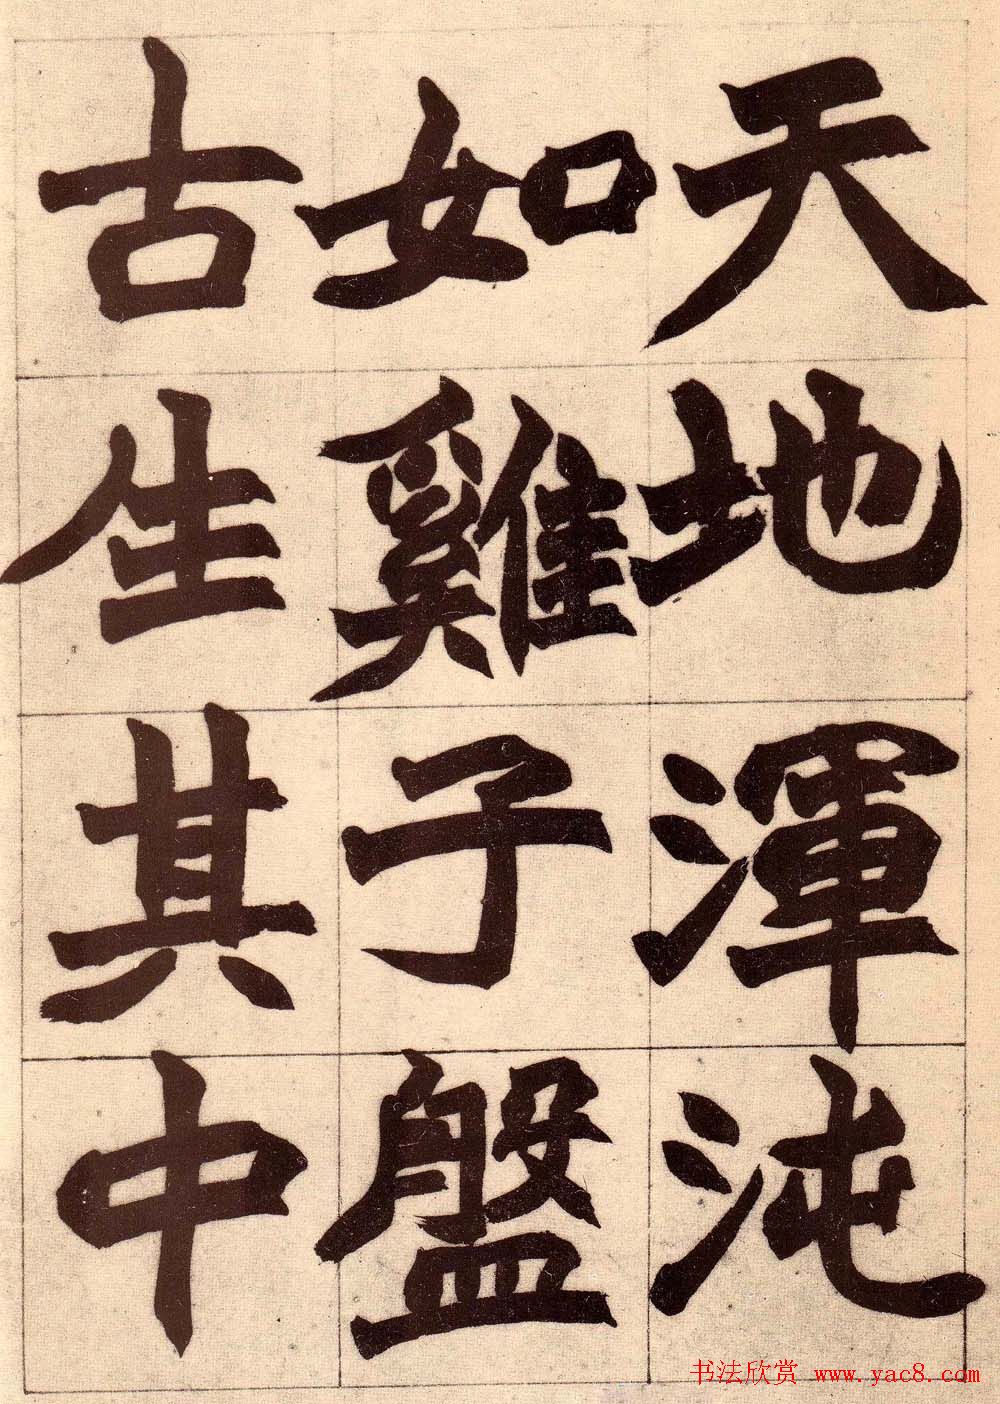 天地渾沌
如雞子盤
古生其中
书法欣赏 www.yac8.com